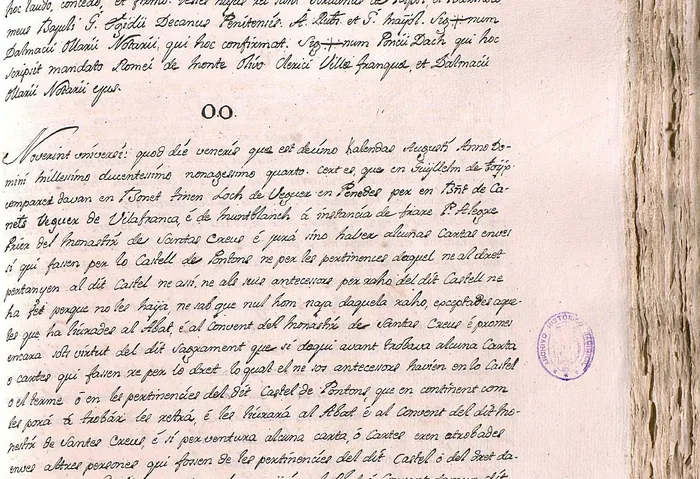 hoc laudo, concedo, et firmo. Testes hujus rei sunt
meus Bajuli G. Egidii Decanus Penitensis. A. Rubi et G. Sig+num
Dalmacii Ollarii Notarii, qui hoc confirmat. Sig+num Poncii Dach qui hoc
scripsit mandato Romei de Monte Olivo Clerici Ville franque, et Dalmacii
Ollarii Notarii ejus.
O.O.
Noverint universi: quod die veneris que est decimo Kalendas Augusti Anno Do-
mini Millessimo ducentessimo nonagessimo quarto. Cert es que en Guillelm de
comparec davan en Bonet tinen Loch de Veguer en Penedes per en Bñt de Ca-
nets Veguer de Vilafranca, é de Muntblanch á instancia de frare P. Alegre
Prior del Monastir de Santas Creus é jurá sino haver alcuñas cartas enves
sí qui fassen per lo Castell de Pontons ne per les pertinences daquel ne al dret
pertanyen al dit Castel ne así, ne als sus antecessors per raho del dit Castell ne
ha fet perque no les haja, ne sab que nul hom naja daquela raho, exceptades aque-
les que ha liurades al Abat, é al Convent del Monastir de Santas Creus é promes
encara sots virtut del dit Sagrament que si dequi avant trobava alcuna Carta
o cartes qui fassen re per lo dret lo qual el ne sos antecessors havien en lo Castel
o el terme ó en les pertinencies del dit Castel de Pontons que en continent com
les porá á trobár les retrá, é les liurará al Abat é al Convent del dit Mo-
nestir de Santes Creus, é sí per ventura alcuna carta, ó Cartes eren atrobades
enves altres persones qui fossen de les pertinencies del dit Castel ó del dret da-
ARCHIVO HISTÓRICO